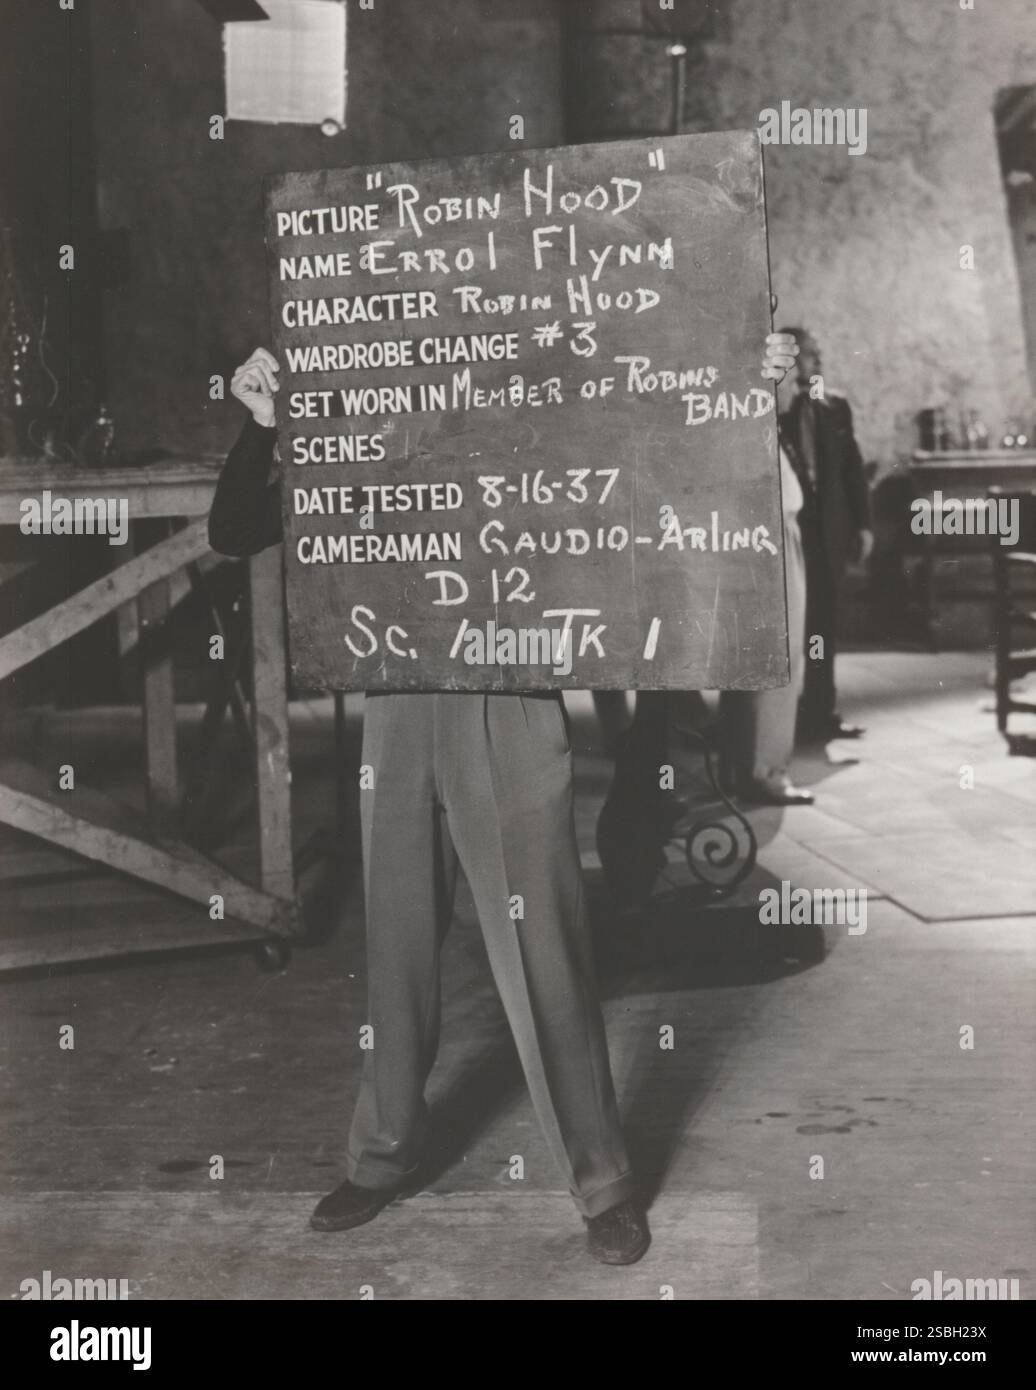 PICTURE "ROBIN HOOD"
NAME ERROL FLYNN
CHARACTER ROBIN HOOD
WARDROBE CHANGE #3
SET WORN IN MEMBER OF ROBINS
BAND
SCENES
DATE TESTED 8-16-37
CAMERAMAN GAUDIO-ARLING
D 12
SC. 1 TK 1
alamy
alamy
alamy
alamy
Image ID: 2SBH23X
www.alamy.com